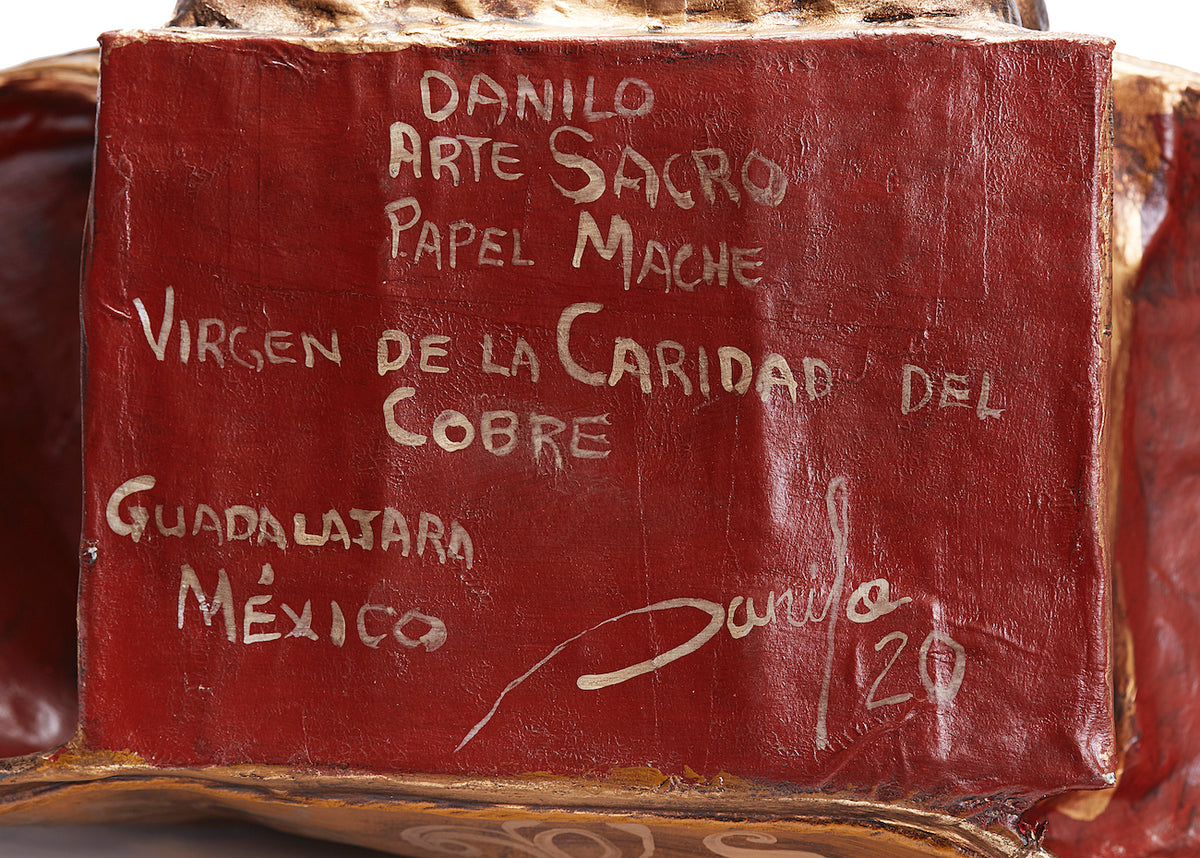 DANILO
ARTE SACRO
PAPEL MACHE
VIRGEN DE LA CARIDAD DEL
COBRE
GUADALAJARA
MÉXICO
Danilo
20